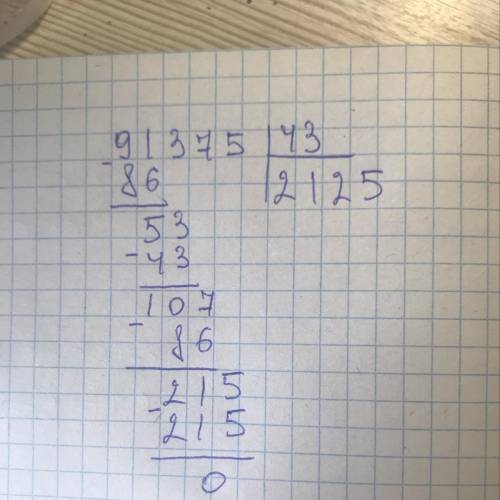 91375 | 43
- 86 | 2125
53
- 43
107
- 86
215
- 215
0